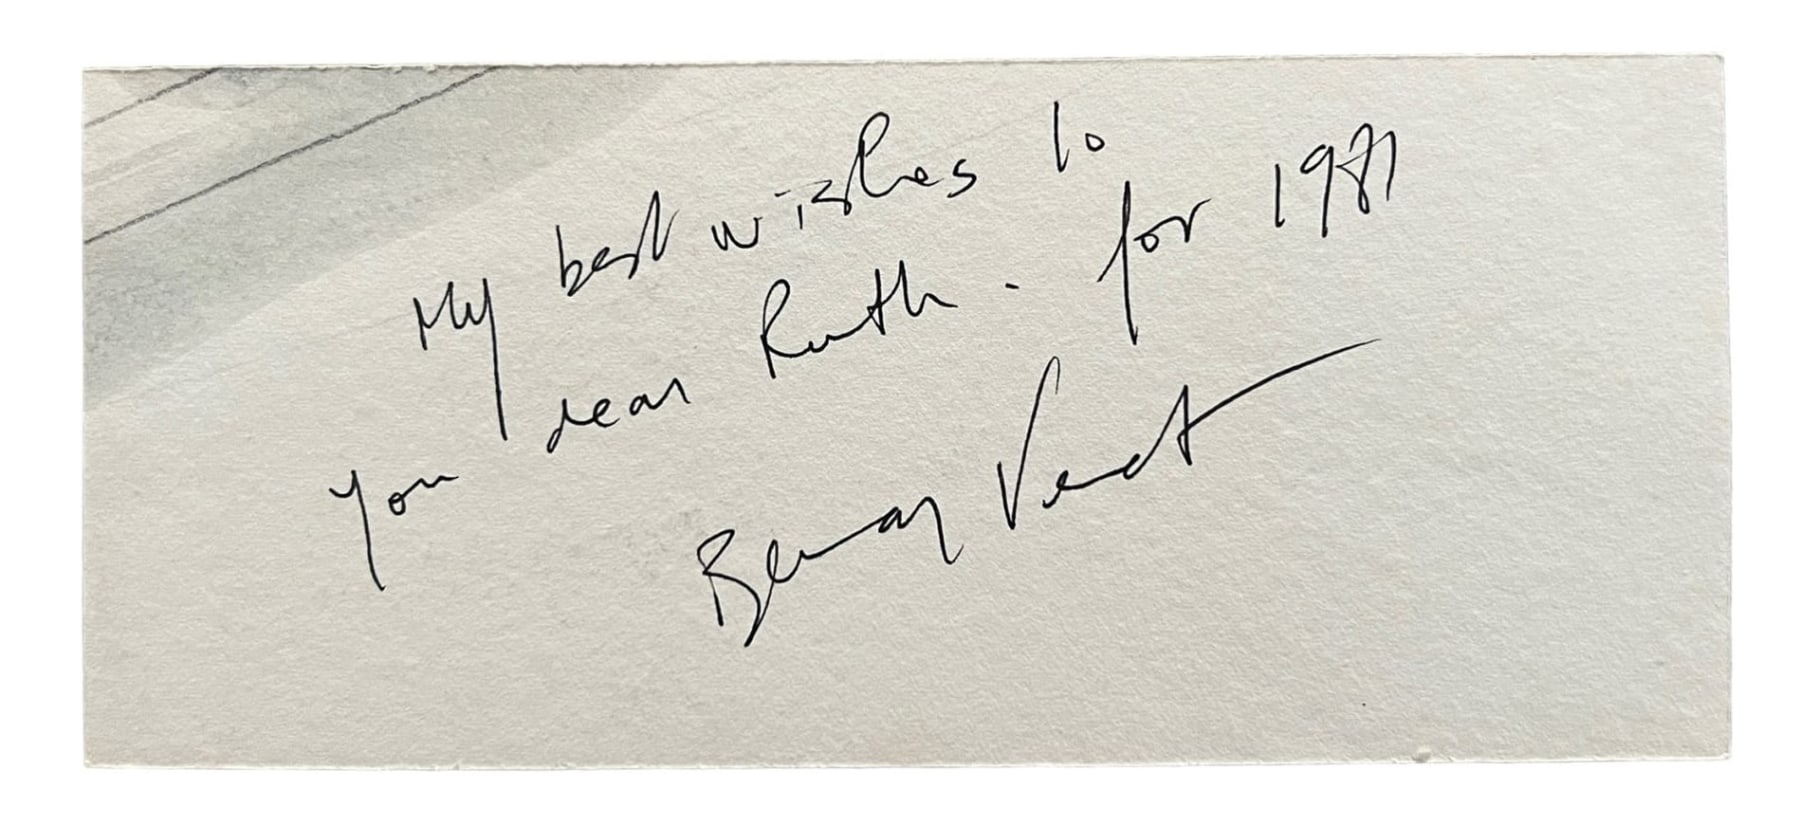 My best wishes to
you dear Ruth - for 1981
Bernar Venet